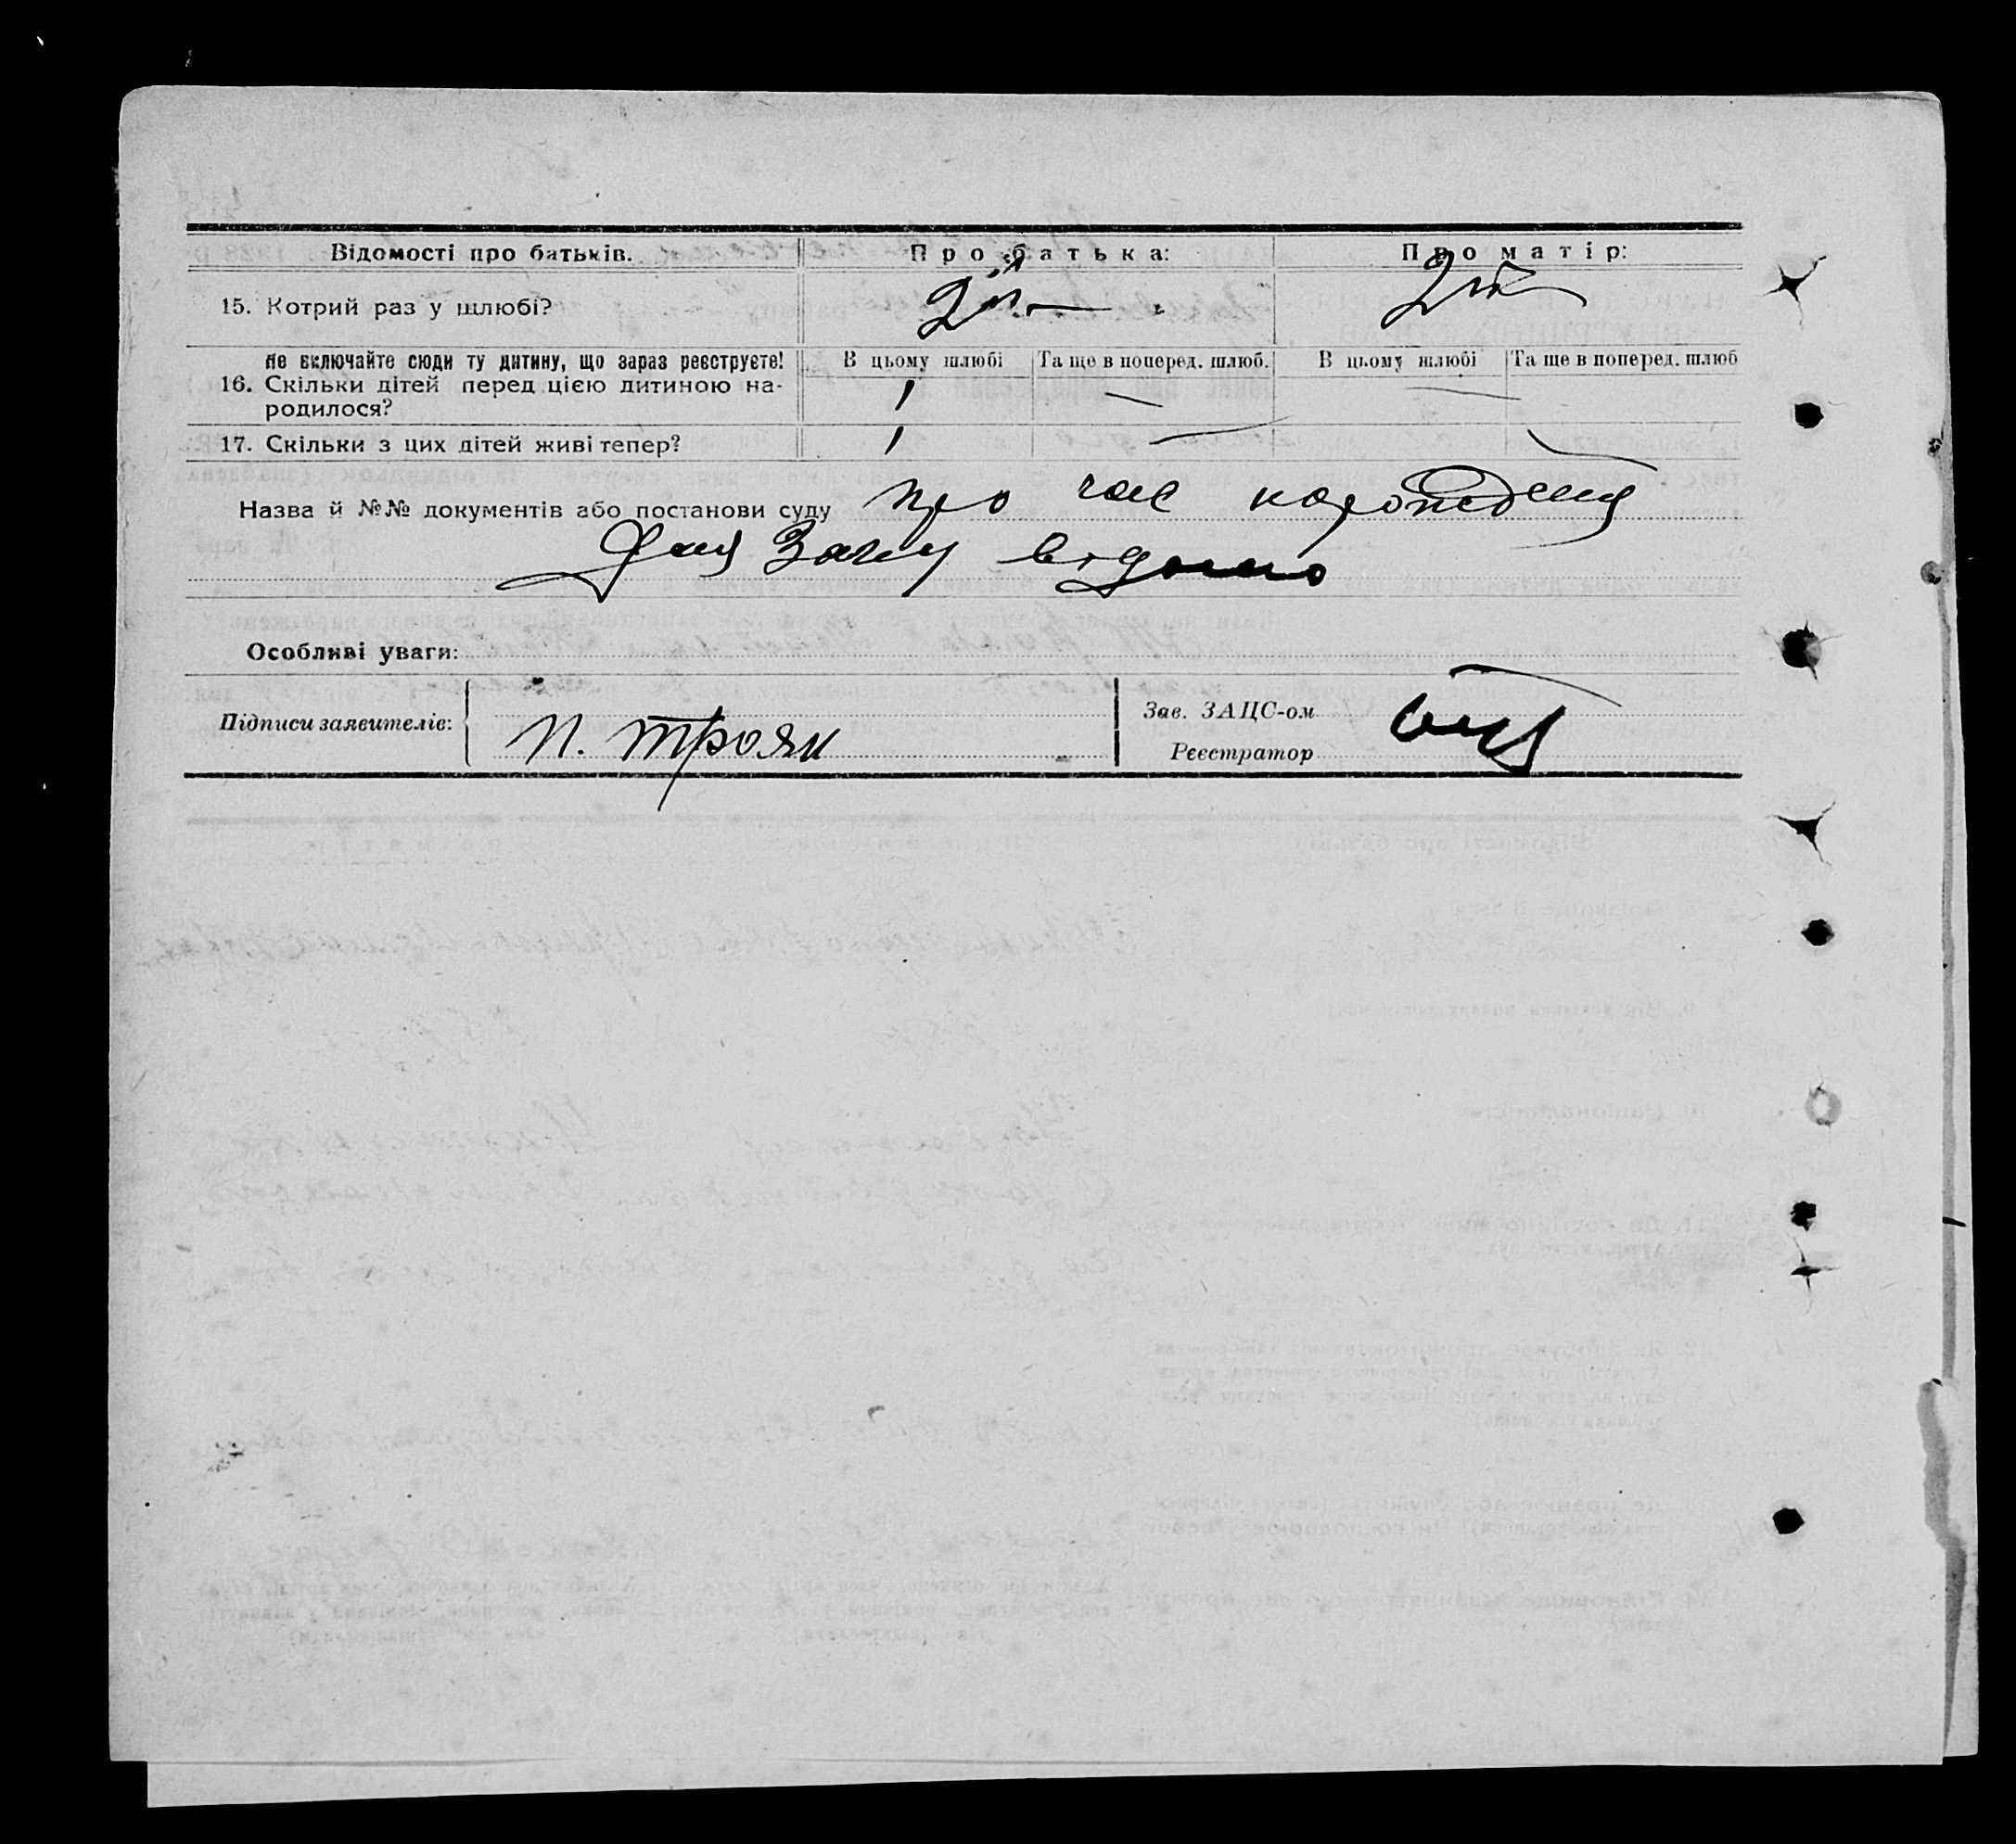 Відомості про батьків. Про батька: Про матір:
15. Котрий раз у шлюбі? 2й 2й
Не включайте сюди ту дитину, що зараз реєструєте! В цьому шлюбі Та ще в поперед. шлюб. В цьому шлюбі Та ще в поперед. шлюб
16. Скільки дітей перед цією дитиною на- 1 — —
родилося?
17. Скільки з цих дітей живі тепер? 1 — —
Назва й №№ документів або постанови суду про час народження
для Загсу відомо
Особливі уваги:
Підписи заявителів: П. Троян
Зав. ЗАЦС-ом
Реєстратор